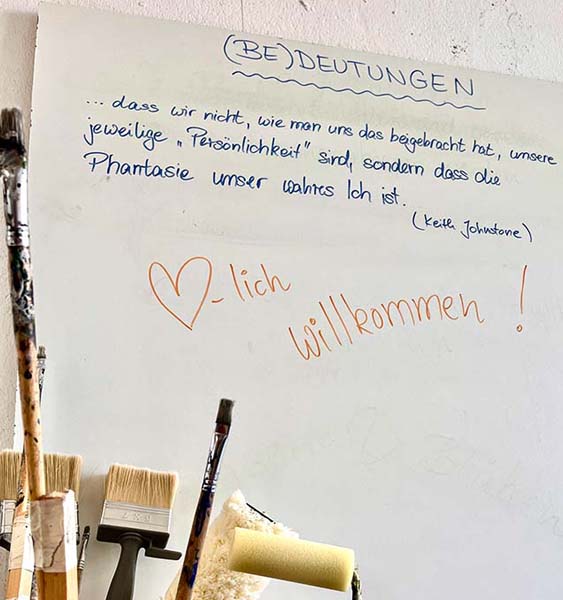 (BE)DEUTUNGEN
... dass wir nicht, wie man uns das beigebracht hat, unsere
jeweilige „Persönlichkeit" sind, sondern dass die
Phantasie unser wahres Ich ist.
(Keith Johnstone)
♡-lich
willkommen!